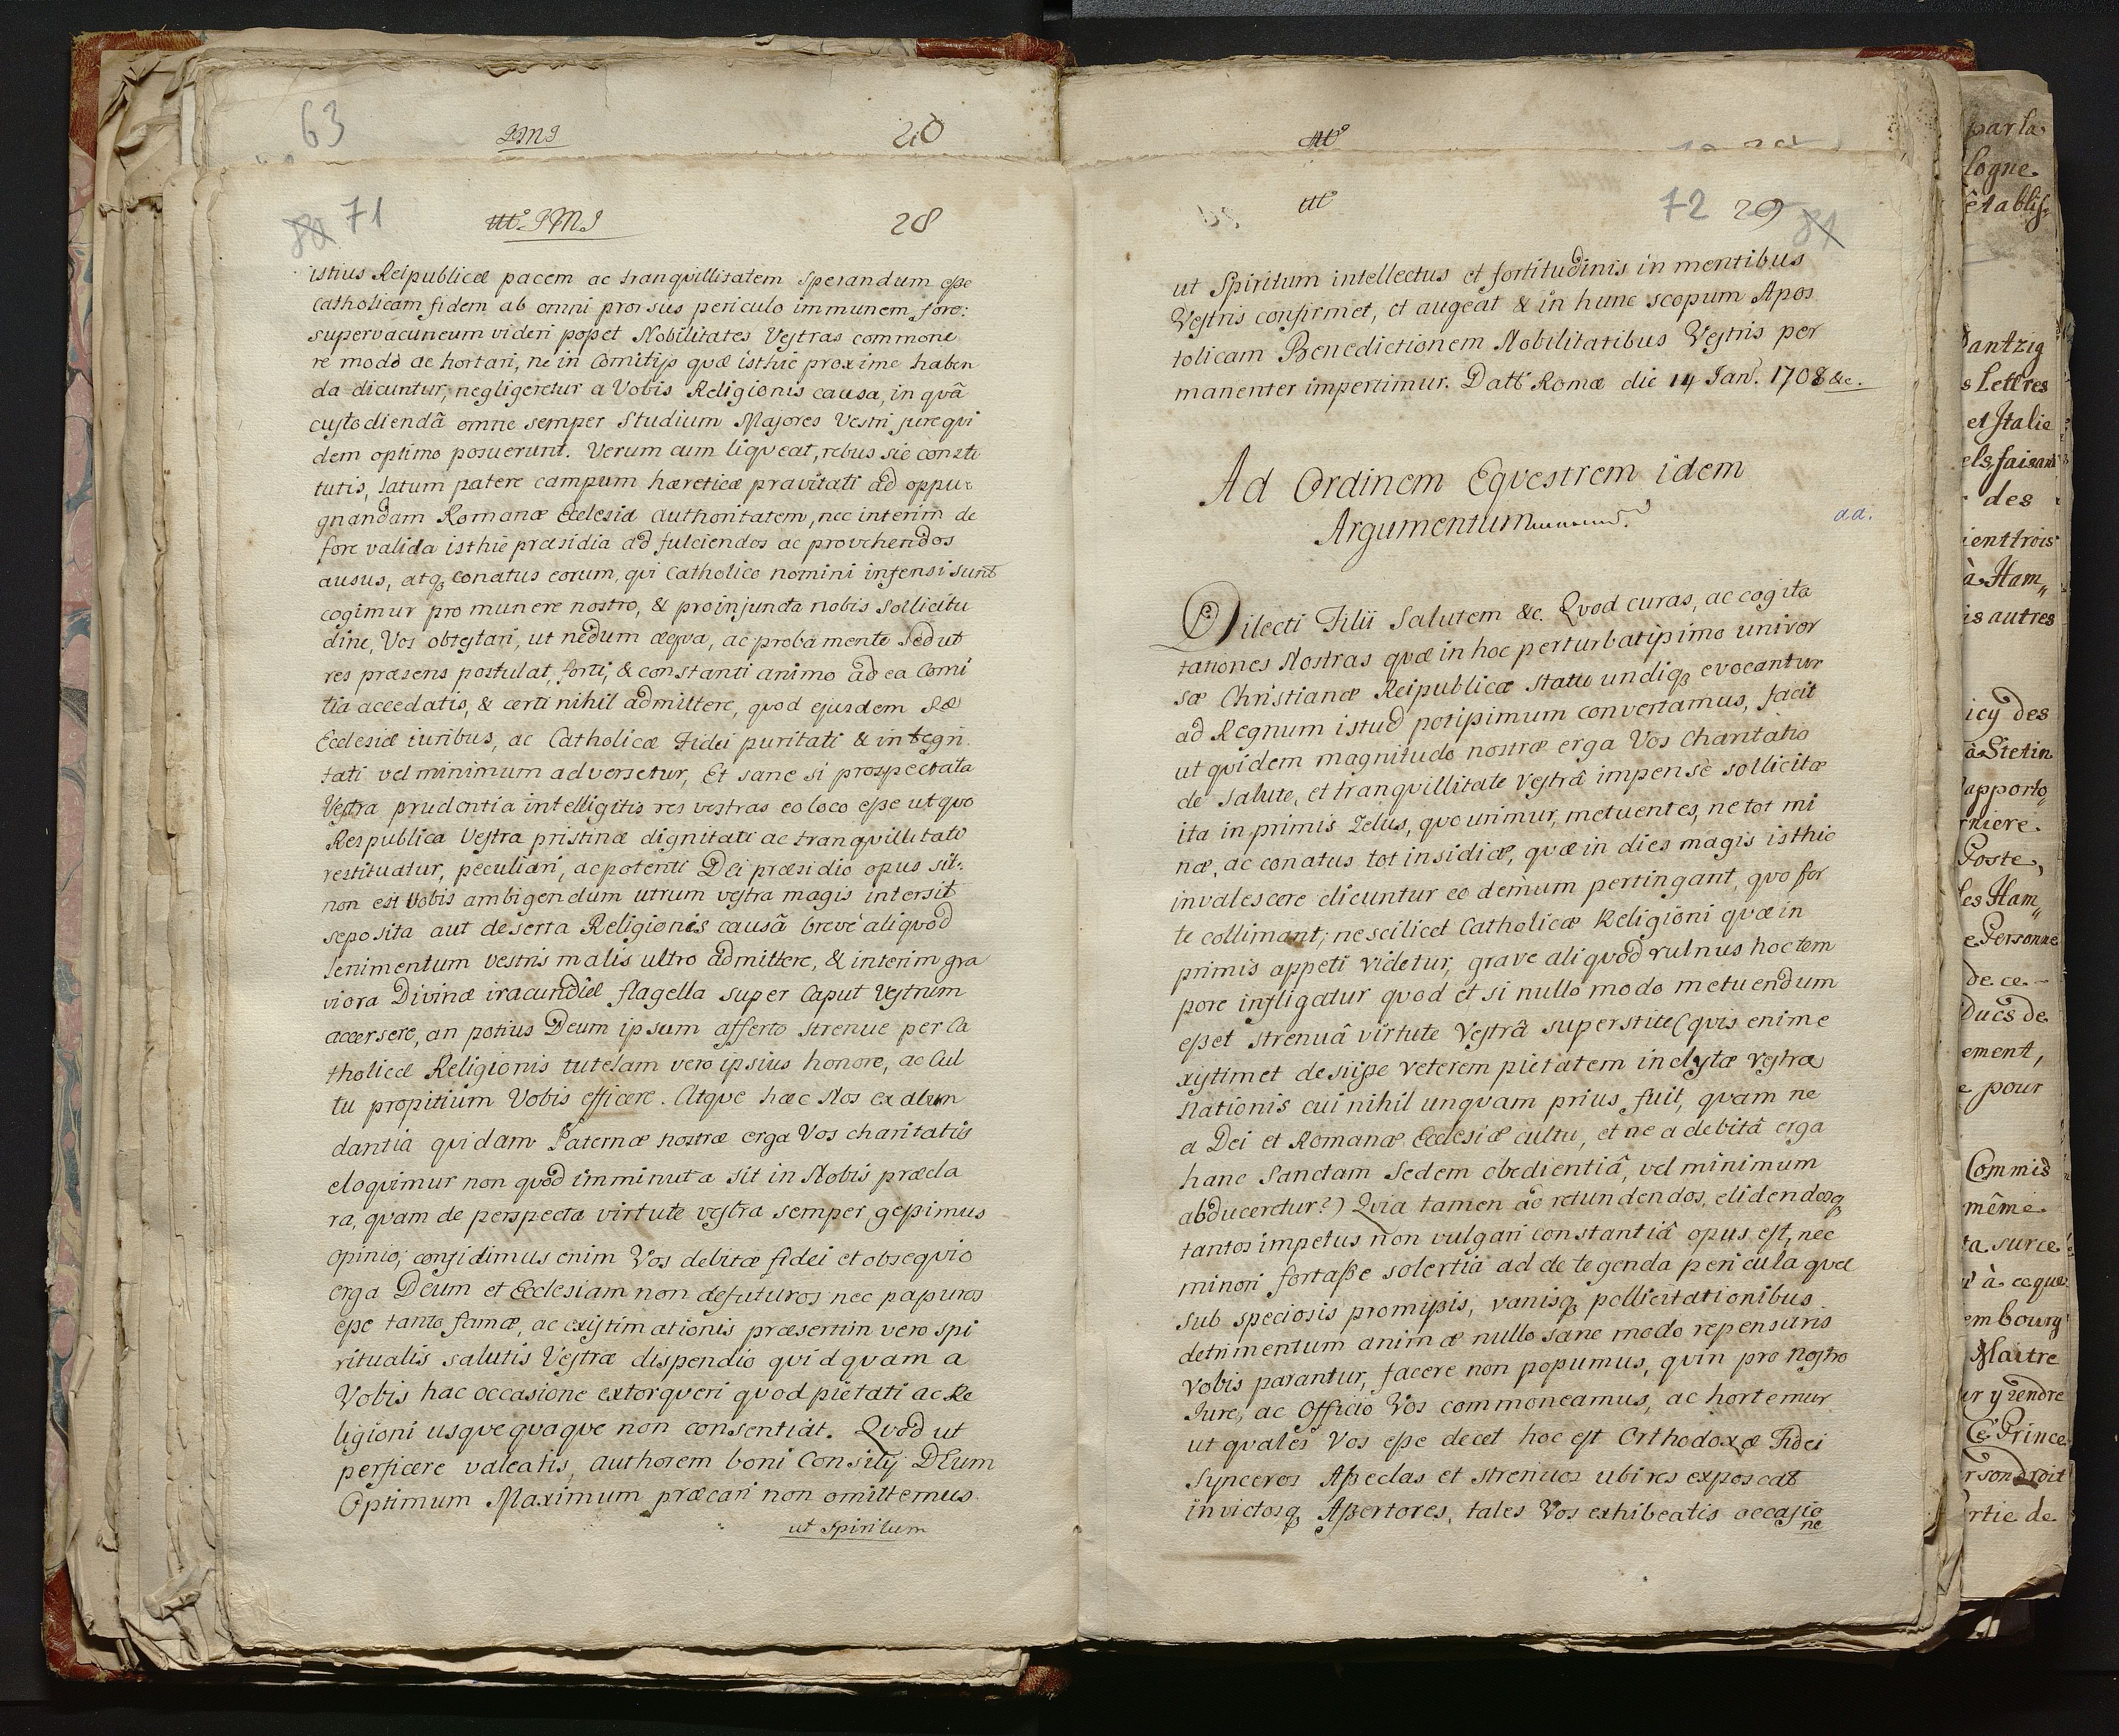 63
JMJ
20
80 71
JMJ
28
istius Reipublicæ pacem ac tranqvillitatem sperandum esse
Catholicam fidem ab omni prorsus periculo immunem fore:
supervacuneum videri posset Nobilitates Vestras commone
re modo ac hortari, ne in Comitijs quæ isthic proxime haben
da dicuntur, negligeretur a Vobis Religionis causa, in quâ
custodiendâ omne semper studium Majores Vestri jure qvi
dem optimo posuerunt. Verum cum liqveat, rebus sic consti
tutis, latum patere campum hæreticæ pravitati ad oppu
gnandam Romanæ Ecclesiæ authoritatem, nec interim de
fore valida isthic præsidia ad fulciendos ac provehendos
ausus, atq conatus eorum, qvi Catholico nomini infensi sunt
cogimur pro munere nostro, & pro injuncta nobis sollicitu
dine, Vos obtestari, ut nedum æqva, ac proba mente sed ut
res præsens postulat, forti, & constanti animo ad ea Comi
tia accedatis, & certi nihil admittere, quod ejusdem Ræ
Ecclesiæ iuribus, ac Catholicæ Fidei puritati & integri
tati vel minimum adversetur, Et sane si prospectata
Vestra prudentia intelligitis res vestras eo loco esse ut quo
Respublica Vestra pristinæ dignitati ac tranqvillitati
restituatur, peculiari, ac potenti Dei præsidio opus sit:
non est Vobis ambigendum utrum vestra magis intersit
seposita aut deserta Religionis causâ breve aliquod
lenimentum vestris malis ultro admittere, & interim gra
viora Divinæ iracundiæ flagella super Caput Vestrum
accersere, an potius Deum ipsum afferto strenue per Ca
tholicæ Religionis tutelam vero ipsius honore, ac Cul
tu propitium Vobis efficere. Atque hæc Nos ex abun
dantia quidam Paternæ nostræ erga Vos charitatis
eloqvimur non quod imminuta sit in Nobis præcla
ra, qvam de perspecta virtute vestra semper gessimus
opinio; confidimus enim Vos debitæ fidei et obseqvio
erga Deum et Ecclesiam non defuturos nec passuros
esse tanto famæ, ac existimationis præsertim vero spi
ritualis salutis Vestræ dispendio qvidqvam a
Vobis hac occasione extorqveri qvod pietati ac Re
ligioni usqve qvaqve non consentiat. Qvod ut
perficere valeatis, authorem boni Consilij DEum
Optimum Maximum præcari non omittemus
ut Spiritum
72 29 81
ut Spiritum intellectus et fortitudinis in mentibus
Vestris confirmet, et augeat & in hunc scopum Apos
tolicam Benedictionem Nobilitatibus Vestris per
manenter impertimur. Datt Romæ die 14 Jan. 1708 &c.
Ad Ordinem Eqvestrem idem
Argumentum
aa.
Dilecti Filii Salutem &c. Qvod curas, ac cogita
tationes Nostras quæ in hoc perturbatissimo univer
sæ Christianæ Reipublicæ statu undiq evocantur
ad Regnum istud potissimum convertamus, facit
ut qvidem magnitudo nostræ erga Vos Charitatis
de salute, et tranqvillitate Vestrâ impense sollicitæ
ita in primis Zelus, quo urimur, metuentes, ne tot mi
næ, ac conatus tot insidiæ, quæ in dies magis isthic
invalescere dicuntur eo demum pertingant, quo for
te collimant; ne scilicet Catholicæ Religioni quæ in
primis appeti videtur, grave aliquod vulnus hoc tem
pore infligatur quod et si nullo modo metuendum
esset strenuâ virtute Vestrâ superstite (quis enim e
xistimet desiisse veterem pietatem inclytæ vestræ
Nationis cui nihil unquam prius fuit, qvam ne
a Dei et Romanæ Ecclesiæ cultu, et ne a debitâ erga
hanc Sanctam Sedem obedientiâ, vel minimum
abduceretur?) Qvia tamen ac retundendos, elidendosq
tantos impetus non vulgari constantiâ opus est, nec
minori fortasse solertia ad detegenda pericula quæ
sub speciosis promissis, vanisq pollicitationibus
detrimentum animæ nullo sane modo repensuris
Vobis parantur, facere non possumus, quin pro nostro
Jure, ac Officio Vos commoneamus, ac hortemur
ut qvales Vos esse decet hoc est Orthodoxæ Fidei
Synceros Asseclas et strenuos ubi res exposcat
invictosq Assertores, tales Vos exhibeatis occasio
ne
par la
logne
établis
Dantzig
s Lettres
et Italie
els, faisant
des
ient trois
à Ham
is autres
icy des
à Stetin
apporto
rniere
Poste,
les Ham
e Personne
de ce
Ducs de
ement,
e pour
Commis
même
ta surce
à ce que
embourg
Maitre
ur y rendre
Ce Prince
r son droit
rtie de